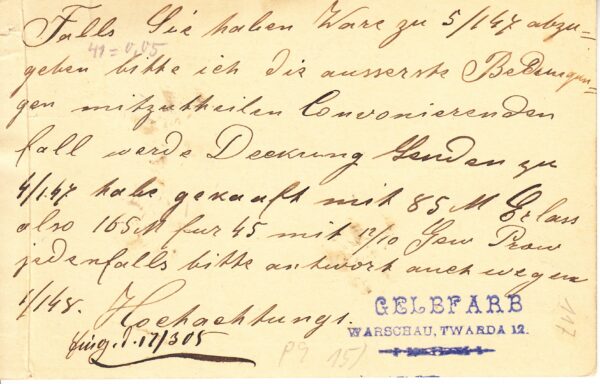 Falls Sie haben Ware zu 5/147 abzu=
41 = 0,05
geben bitte ich die ausserste Bedingun=
gen mitzutheilen Convonierenden
fall werde Deckung Senden zu
4/147 habe gekauft mit 85 M Erlass
also 165 M fur 45 mit 12/10 Gew Prow
jedenfalls bitte antwort auch wegen
1/148. Hochachtungs.
GELBFARB
WARSCHAU, TWARDA 12.
Eing. d. 17/3 05
P9 15/
117